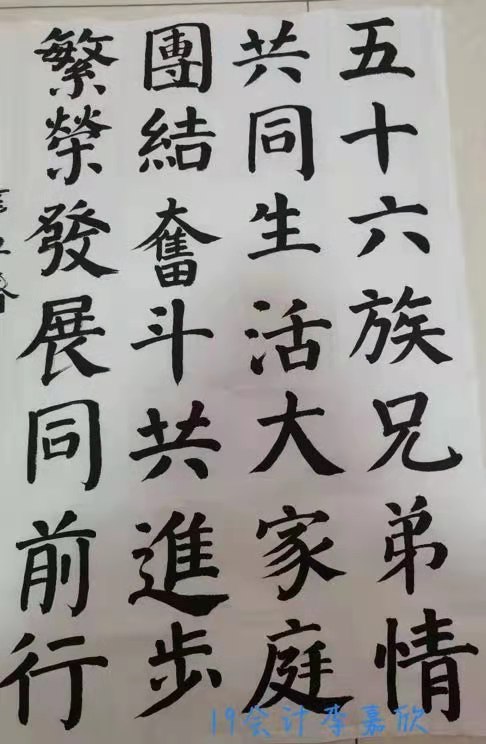 五十六族兄弟情
共同生活大家庭
團結奮斗共進步
繁榮發展同前行
19会计李嘉欣